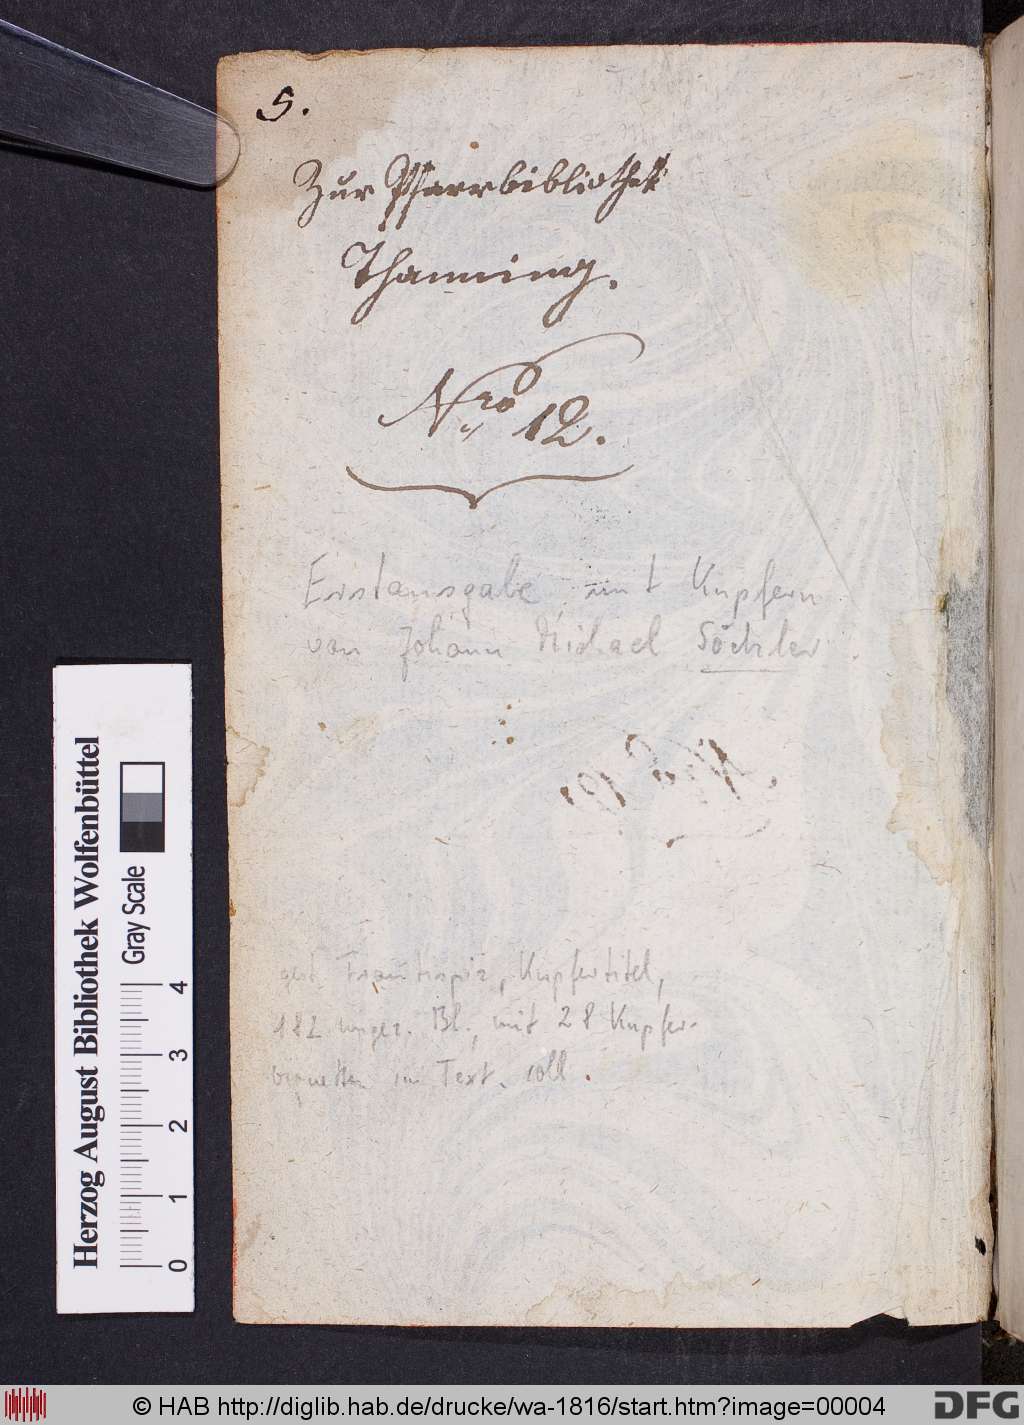 5.
Zur Pfarrbibliothek
Thanning.
Nro 12.
Erstausgabe, mit Kupfern
von Johann Michael Söckler.
Nro 12.
gest. Frontispiz, Kupfertitel,
182 ungez. Bl., mit 28 Kupfer-
vignetten im Text. coll.
Herzog August Bibliothek Wolfenbüttel
Gray Scale
0 1 2 3 4
© HAB http://diglib.hab.de/drucke/wa-1816/start.htm?image=00004
DFG